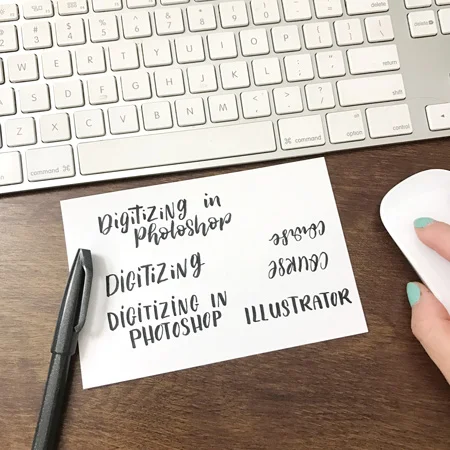 Digitizing in
Photoshop
course
DIGITIZING
COURSE
DIGITIZING IN
PHOTOSHOP
ILLUSTRATOR
command
option
control
command
return
shift
Q W E R T Y U I O P
A S D F G H J K L
Z X C V B N M